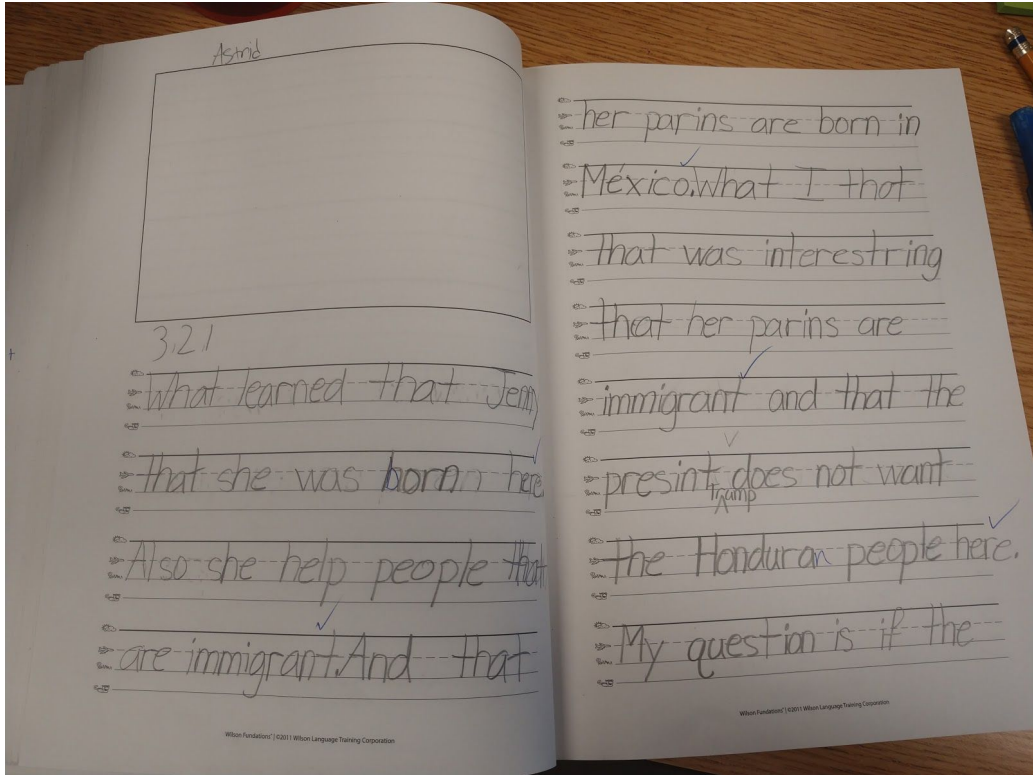 Astrid
3.2.1
What learned that Jenn
that she was born here
Also she help people that
are immigrant. And that
Wilson Fundations® | ©2011 Wilson Language Training Corporation
her parins are born in
México. What I thot
that was interestring
that her parins are
immigrant and that the
presint does not want
Trump
the Honduran people here.
My question is if the
Wilson Fundations® | ©2011 Wilson Language Training Corporation